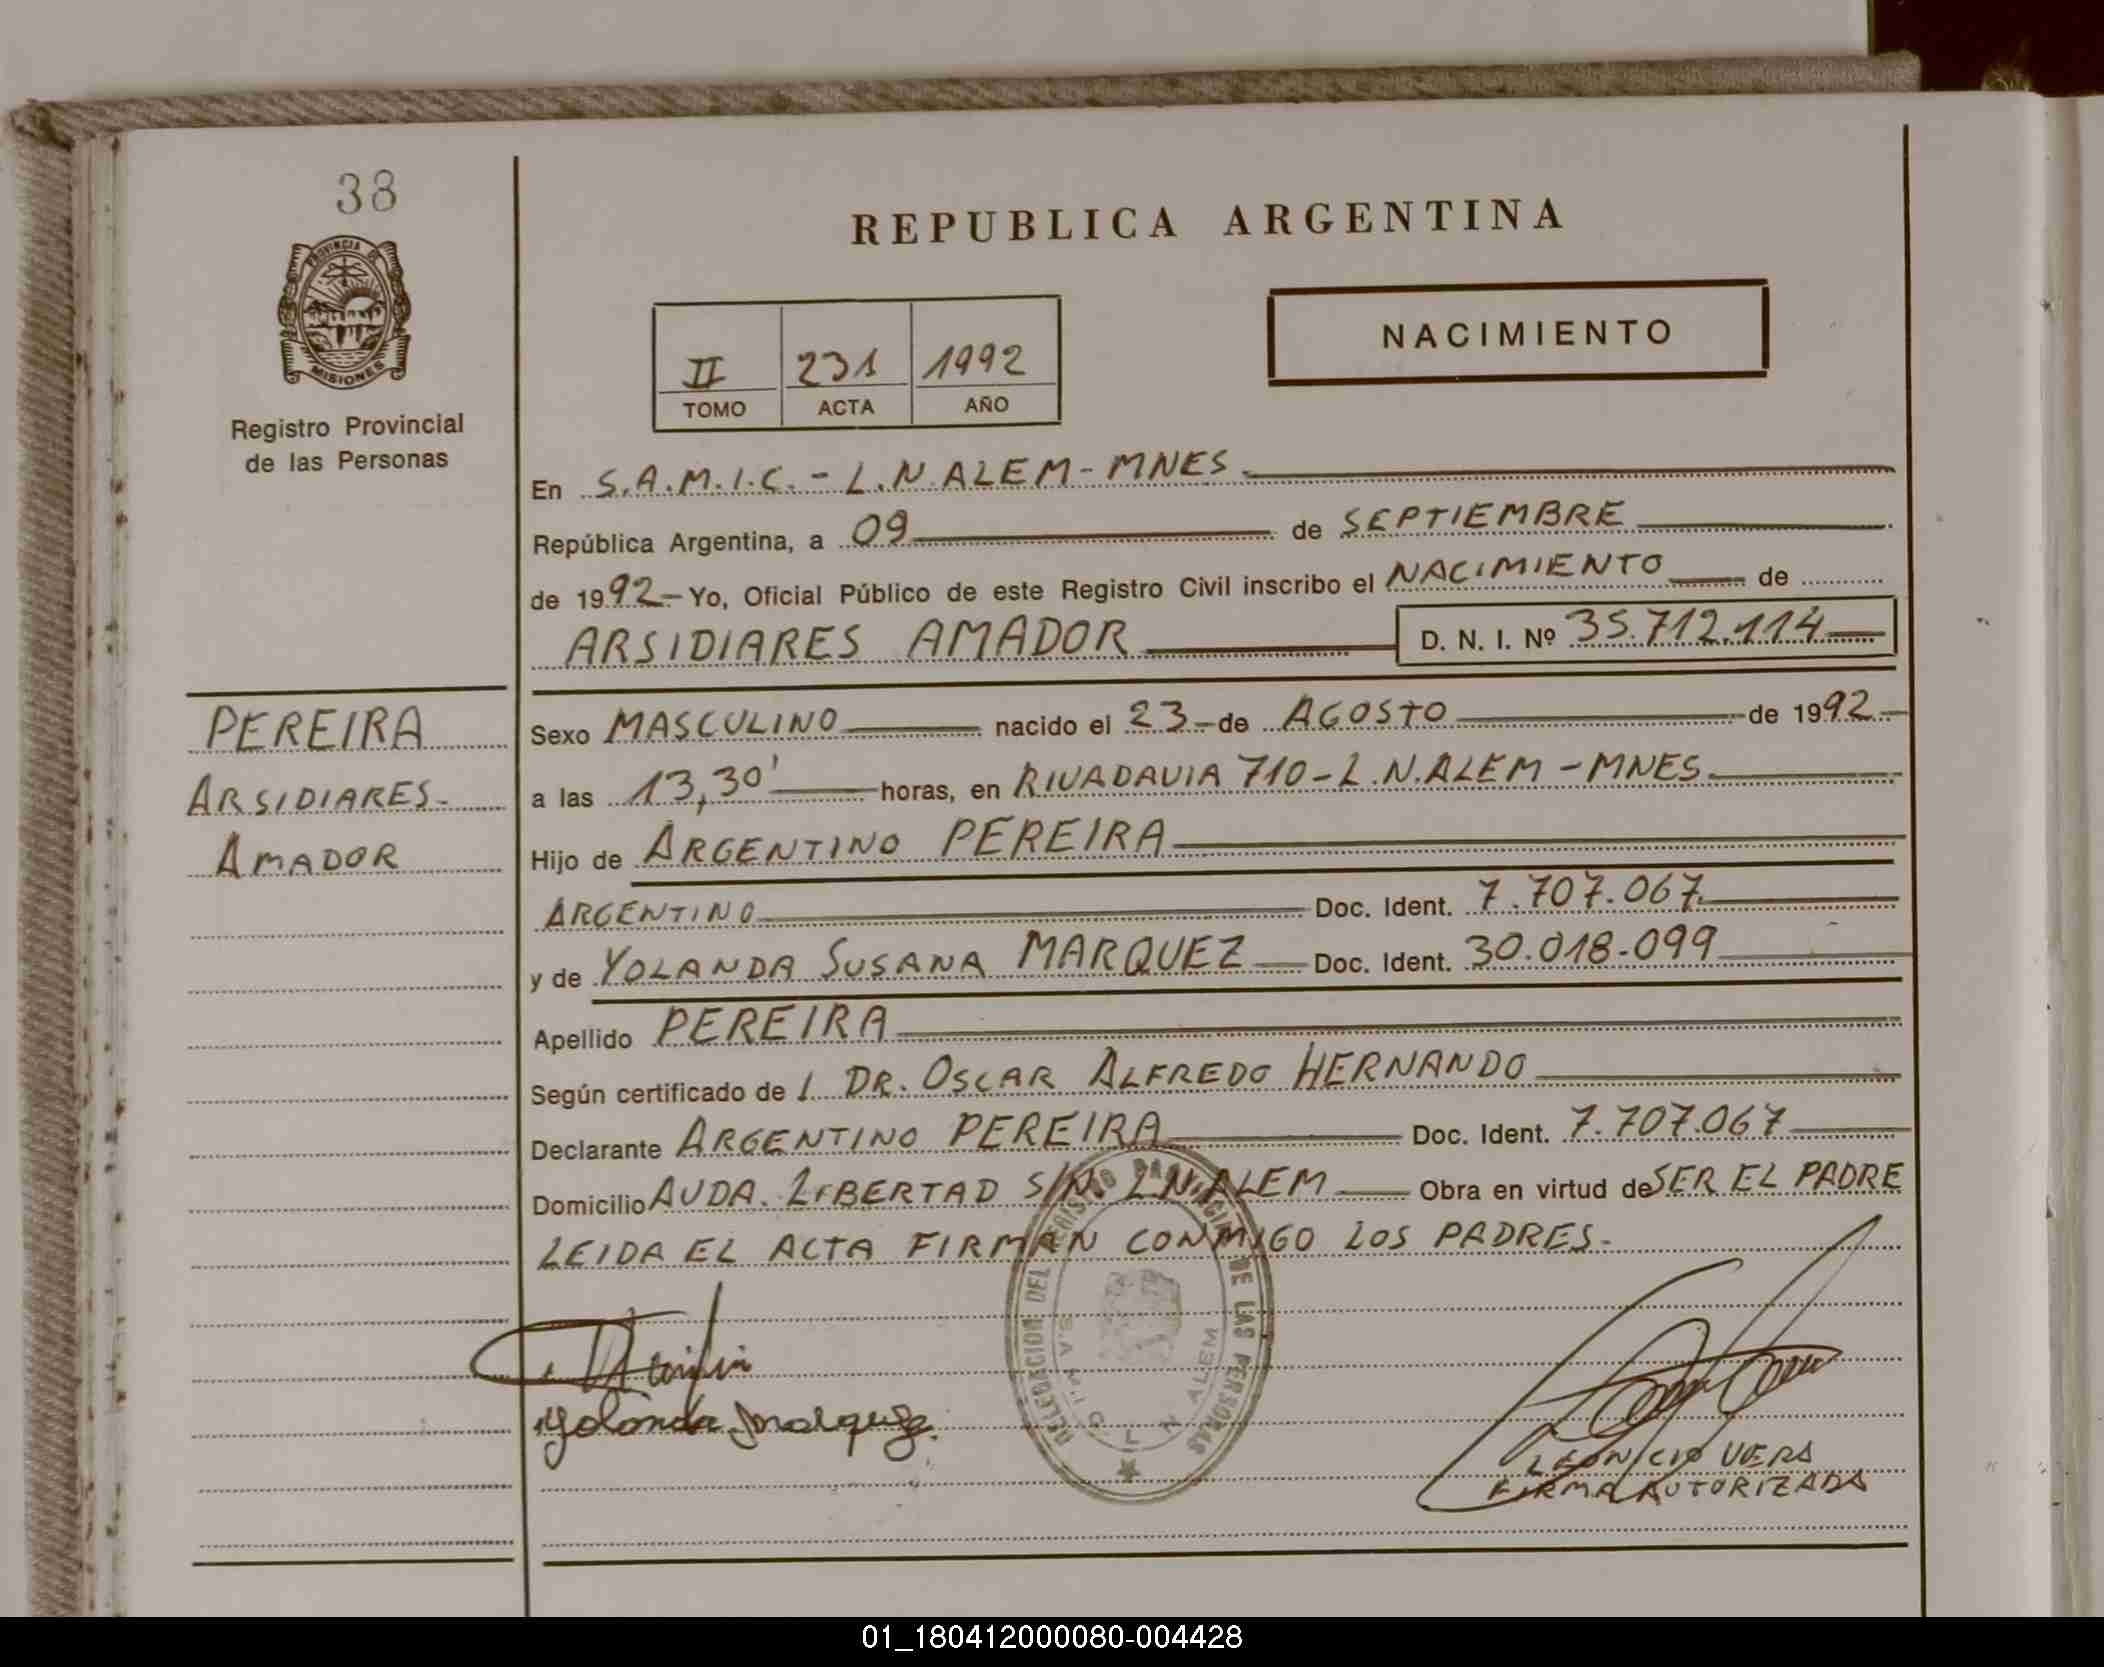 38
PROVINCIA DE
MISIONES
Registro Provincial
de las Personas
REPUBLICA ARGENTINA
II 231 1992
TOMO ACTA AÑO
NACIMIENTO
En S.A.M.I.C. - L.N.ALEM - MNES
República Argentina, a 09 de SEPTIEMBRE
de 1992.- Yo, Oficial Público de este Registro Civil inscribo el NACIMIENTO de
ARSIDIARES AMADOR D. N. I. Nº 35.712.114
PEREIRA
ARSIDIARES-
AMADOR
Sexo MASCULINO nacido el 23 - de AGOSTO de 1992.-
a las 13,30' horas, en RIVADAVIA 710 - L.N.ALEM - MNES
Hijo de ARGENTINO PEREIRA
ARGENTINO Doc. Ident. 7.707.067
y de YOLANDA SUSANA MARQUEZ Doc. Ident. 30.018.099
Apellido PEREIRA
Según certificado de l. DR. OSCAR ALFREDO HERNANDO
Declarante ARGENTINO PEREIRA Doc. Ident. 7.707.067
Domicilio AVDA. LIBERTAD S/N. L.N.ALEM Obra en virtud de SER EL PADRE
LEIDA EL ACTA FIRMAN CONMIGO LOS PADRES-
DELEGACION DEL REGISTRO PROVINCIAL DE LAS PERSONAS
S.A.M.I.C. L N ALEM
Yolanda Marquez
LEONICIO VERA
FIRMA AUTORIZADA
01_180412000080-004428